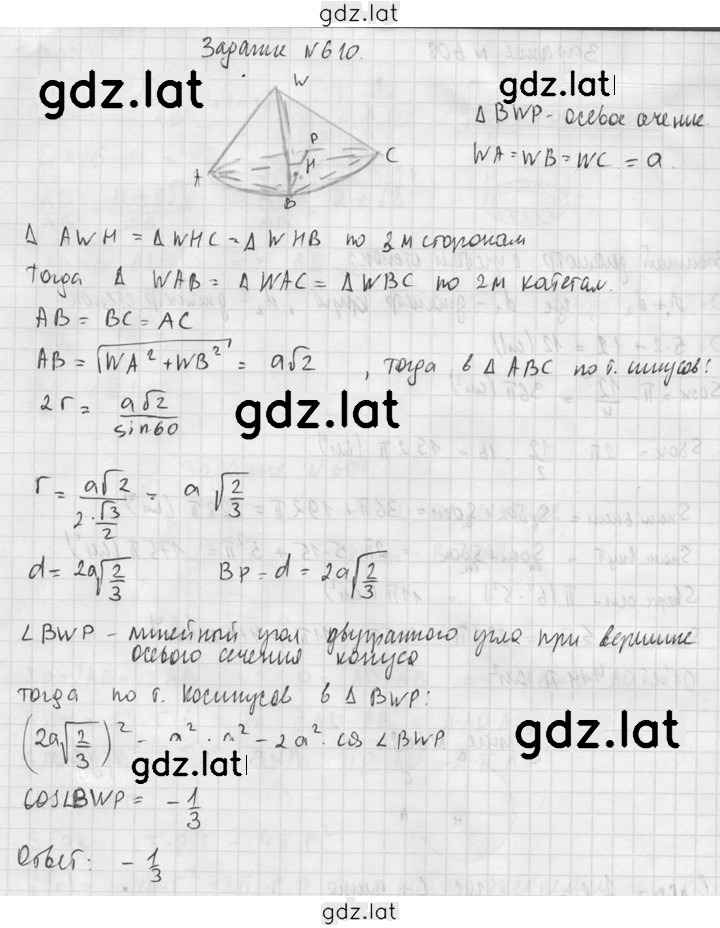 gdz.lat
Задание №610.
gdz.lat
gdz.lat
W
A
B
C
P
H
Δ BWP - осевое сечение
WA = WB = WC = a
Δ AWH = Δ WHC = Δ WHB по 2м сторонам
Тогда Δ WAB = Δ WAC = Δ WBC по 2м катетам.
AB = BC = AC
AB = √(WA² + WB²) = a√2 , тогда в Δ ABC по т. синусов:
2r = a√2 / sin60
gdz.lat
r = a√2 / (2·√3/2) = a√(2/3)
d = 2a√(2/3) BP = d = 2a√(2/3)
∠BWP - линейный угол двугранного угла при вершине
осевого сечения конуса
тогда по т. косинусов в Δ BWP:
gdz.lat
(2a√(2/3))² = a² · a² - 2a² · cos ∠BWP
gdz.lat
cos∠BWP = -1/3
Ответ: -1/3
gdz.lat